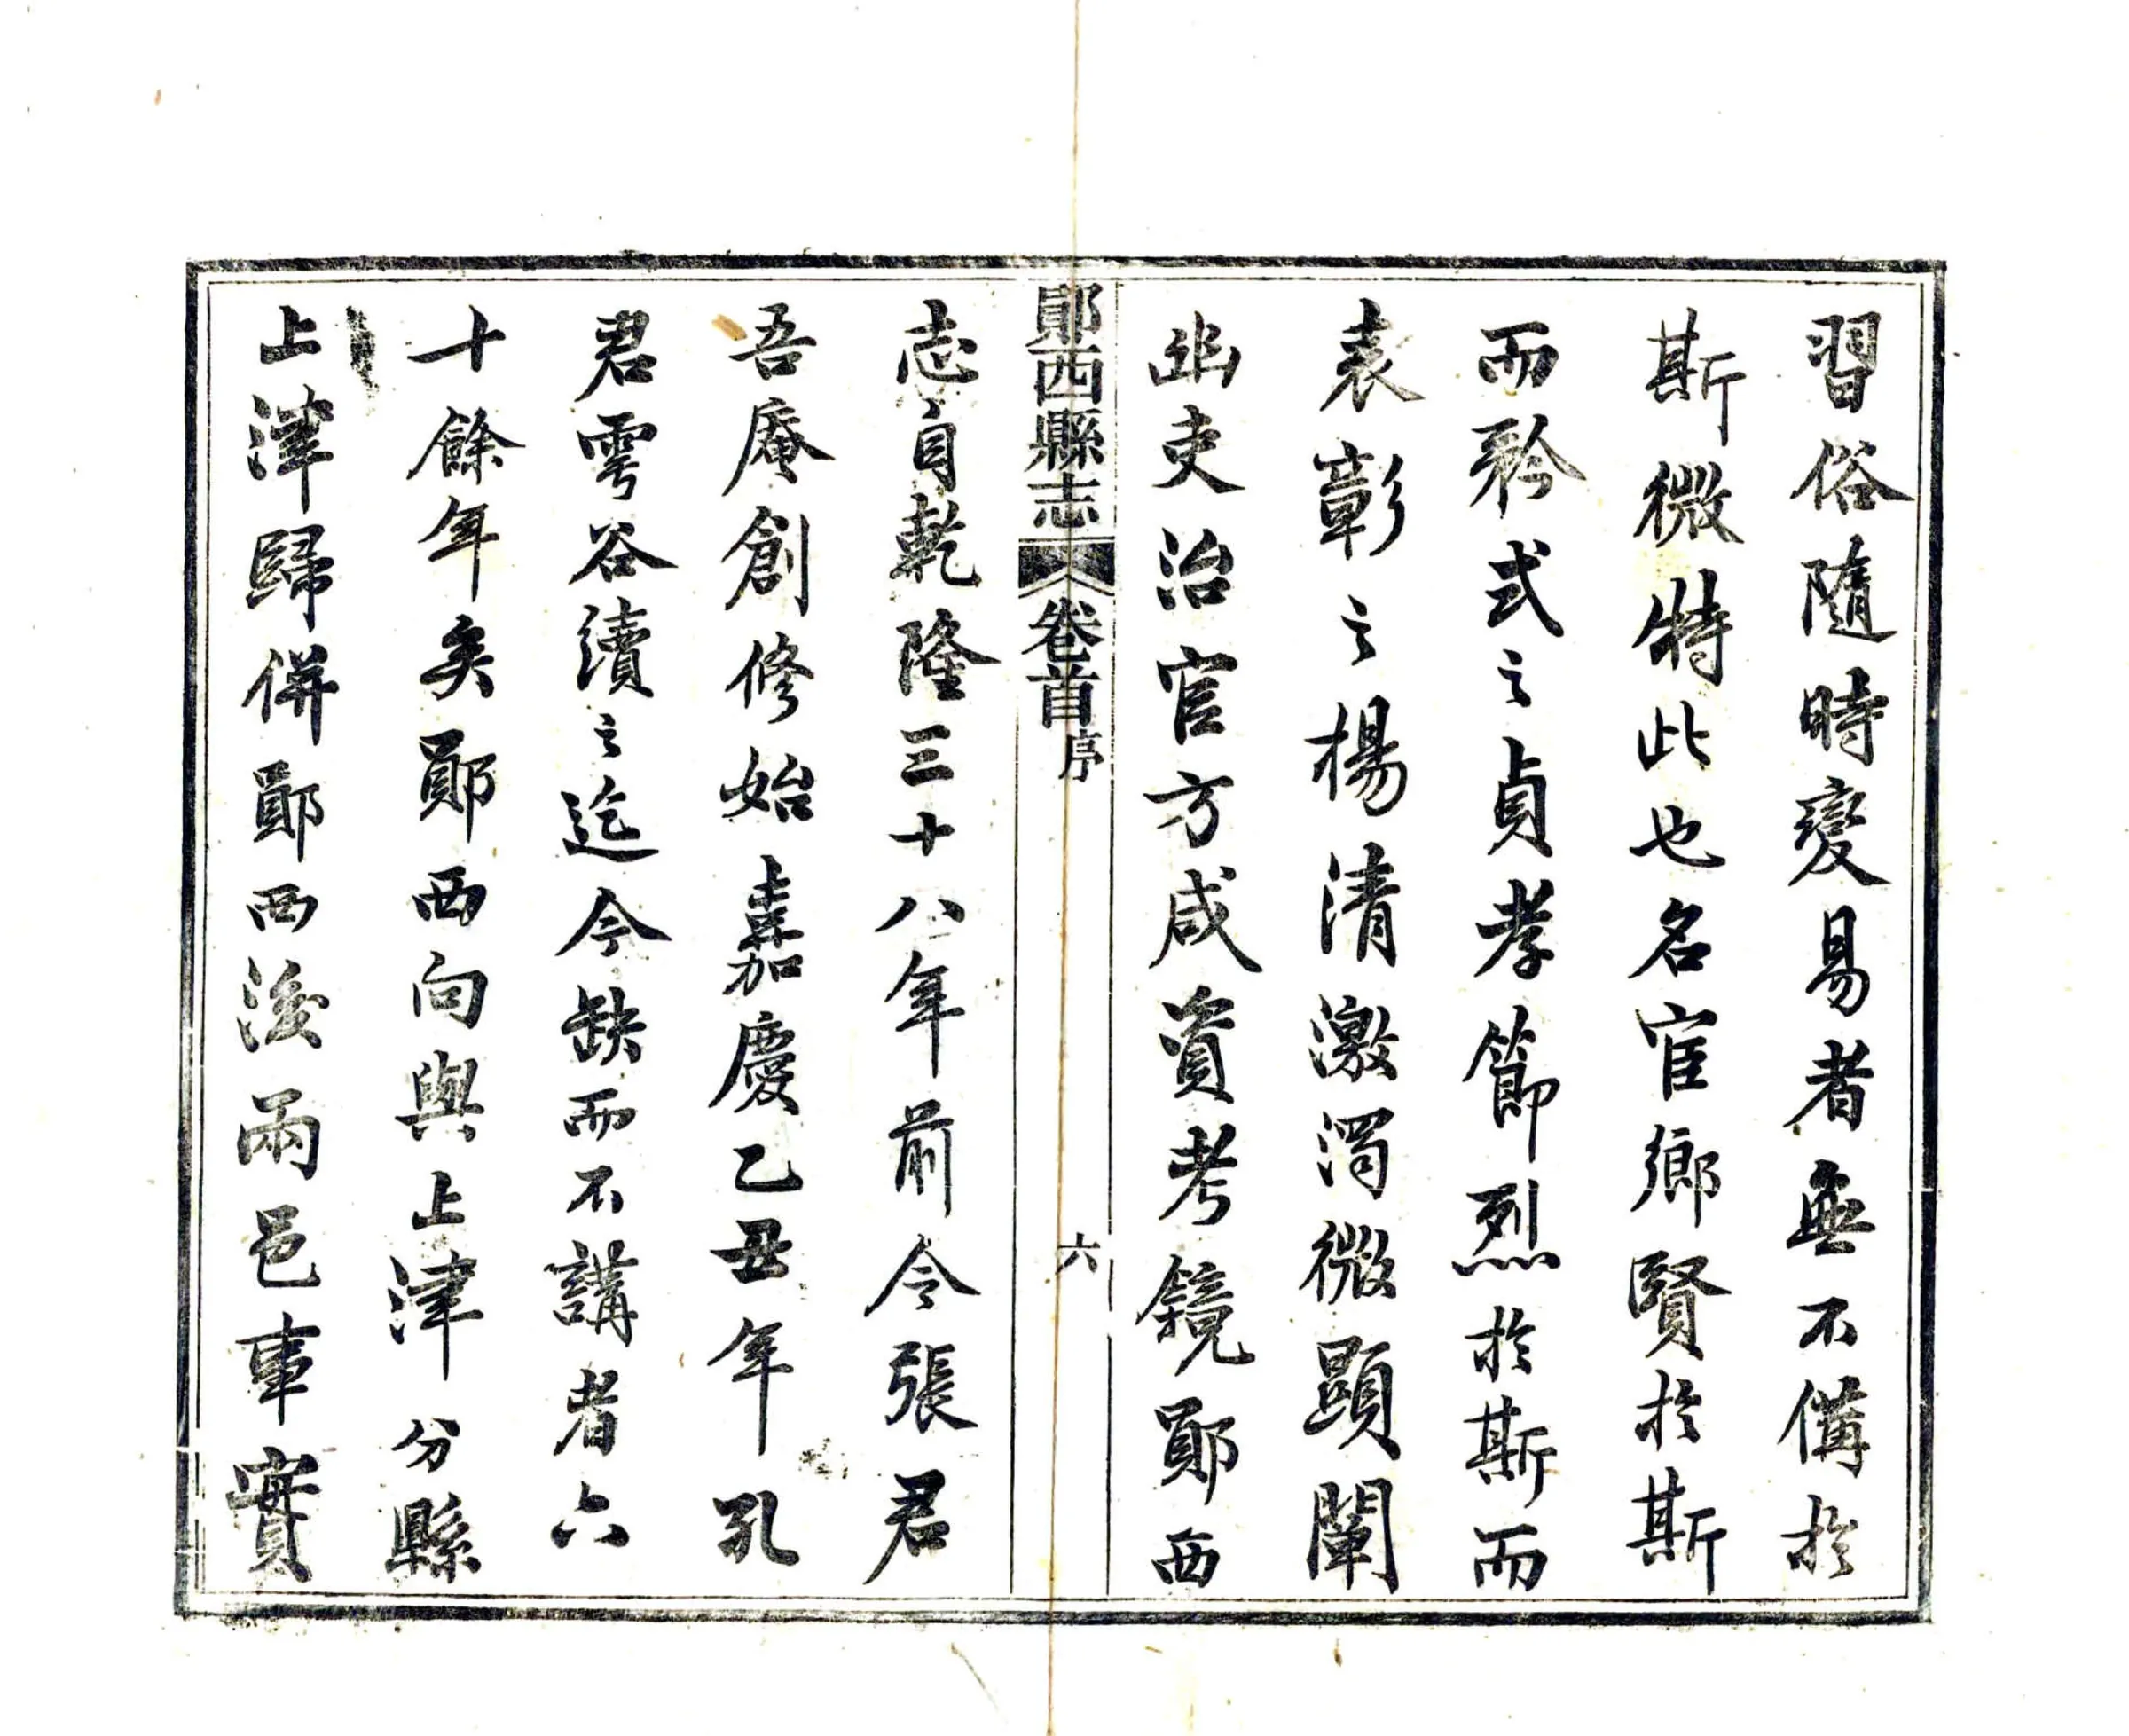 習俗隨時變易者無不備於
斯微特此也名宦鄉賢於斯
而矜式之貞孝節烈於斯而
表彰之楊清激濁微顯闡
幽吏治官方咸資考鏡鄖西
鄖西縣志 卷首 序 六
志自乾隆三十八年前令張君
吾庵創修始嘉慶乙丑年孔
君雩谷續之迄今缺而不講者六
十餘年矣鄖西向與上津分縣
上津歸併鄖西後兩邑事實